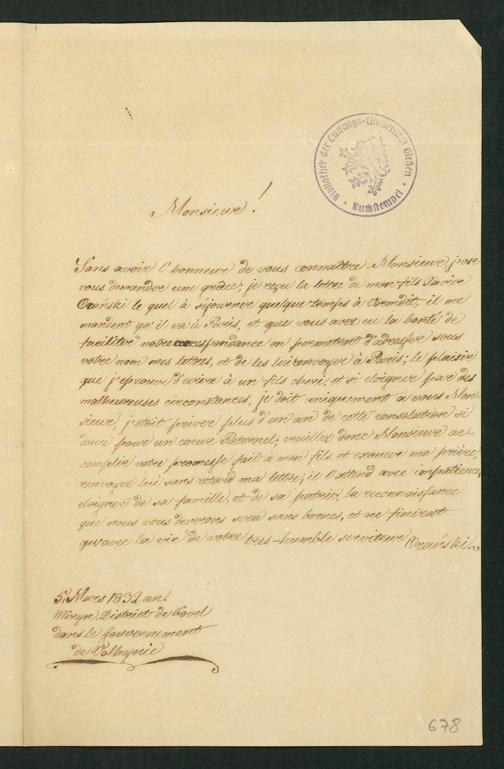 Bibliothek der Ludwigs-Universität Gießen
Buchstempel
Monsieur!
Sans avoir l'honneur de vous connaître Monsieur, j'ose
vous demander une grâce; je reçu la lettre de mon fils Xavier
le quel à séjourner quelque temps à il me
mandent qu'il va à Paris, et que vous avez eu la bonté de
faciliter notre correspondance en permettant d'adresser sous
votre nom mes lettres, et de les lui renvoyer à Paris; le plaisir
que j'eprouve d'écrire à un fils cheri, et si eloigner par des
malheureuses circonstances, je doit uniquement à vous Mon-
sieur, j'etoit priver plus d'un an de cette consolation si
doux pour un coeur Paternel, veuillez donc Monsieur ac-
complir votre promesse fait à mon fils et exaucer ma prière
renvoyez lui sans retard ma lettre, il l'attend avec impatience,
eloigner de sa famille, et de sa patrie, la reconnaissance
que nous vous devrons sera sans bornes, et ne finirat
qu'avec la vie de votre très-humble serviteur
5 Mars 1832 ans
District de Kovel
dans le Gouvernement
de Volhynie
678